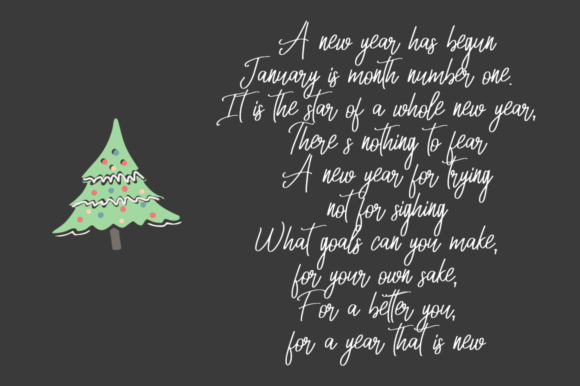 A new year has begun
January is month number one.
It is the star of a whole new year,
There s nothing to fear
A new year for trying
not for sighing
What goals can you make,
for your own sake,
For a better you,
for a year that is new